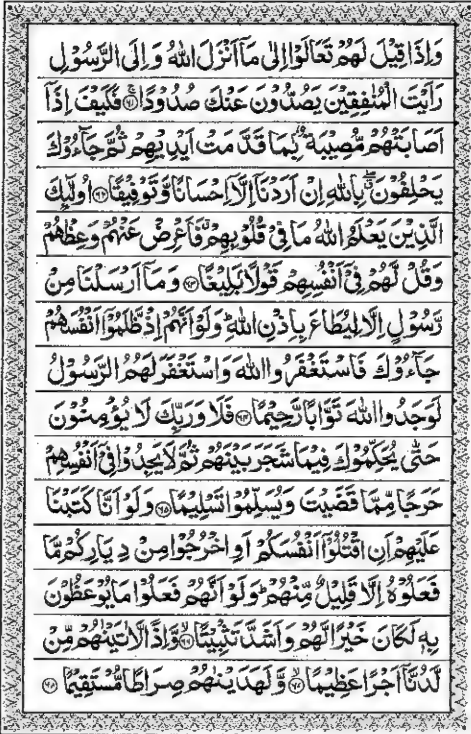 وَاِذَا قِيْلَ لَهُمْ تَعَالَوْا اِلٰى مَاۤ اَنْزَلَ اللّٰهُ وَ اِلَى الرَّسُوْلِ
رَاَيْتَ الْمُنٰفِقِيْنَ يَصُدُّوْنَ عَنْكَ صُدُوْدًا ۝۶۱ فَكَيْفَ اِذَاۤ
اَصَابَتْهُمْ مُّصِيْبَةٌۢ بِمَا قَدَّمَتْ اَيْدِيْهِمْ ثُمَّ جَآءُوْكَ
يَحْلِفُوْنَ ۖۗ بِاللّٰهِ اِنْ اَرَدْنَاۤ اِلَّاۤ اِحْسَانًا وَّ تَوْفِيْقًا ۝۶۲ اُولٰٓئِكَ
الَّذِيْنَ يَعْلَمُ اللّٰهُ مَا فِيْ قُلُوْبِهِمْ ۗ فَاَعْرِضْ عَنْهُمْ وَعِظْهُمْ
وَقُلْ لَّهُمْ فِيْۤ اَنْفُسِهِمْ قَوْلًۢا بَلِيْغًا ۝۶۳ وَ مَاۤ اَرْسَلْنَا مِنْ
رَّسُوْلٍ اِلَّا لِيُطَاعَ بِاِذْنِ اللّٰهِ ؕ وَلَوْ اَنَّهُمْ اِذْ ظَّلَمُوْۤا اَنْفُسَهُمْ
جَآءُوْكَ فَاسْتَغْفَرُوا اللّٰهَ وَاسْتَغْفَرَ لَهُمُ الرَّسُوْلُ
لَوَجَدُوا اللّٰهَ تَوَّابًا رَّحِيْمًا ۝۶۴ فَلَا وَرَبِّكَ لَا يُؤْمِنُوْنَ
حَتّٰى يُحَكِّمُوْكَ فِيْمَا شَجَرَ بَيْنَهُمْ ثُمَّ لَا يَجِدُوْا فِيْۤ اَنْفُسِهِمْ
حَرَجًا مِّمَّا قَضَيْتَ وَيُسَلِّمُوْا تَسْلِيْمًا ۝۶۵ وَلَوْ اَنَّا كَتَبْنَا
عَلَيْهِمْ اَنِ اقْتُلُوْۤا اَنْفُسَكُمْ اَوِ اخْرُجُوْا مِنْ دِيَارِكُمْ مَّا
فَعَلُوْهُ اِلَّا قَلِيْلٌ مِّنْهُمْ ؕ وَلَوْ اَنَّهُمْ فَعَلُوْا مَا يُوْعَظُوْنَ
بِهٖ لَكَانَ خَيْرًا لَّهُمْ وَاَشَدَّ تَثْبِيْتًا ۝۶۶ وَّاِذًا لَّاٰتَيْنٰهُمْ مِّنْ
لَّدُنَّاۤ اَجْرًا عَظِيْمًا ۝۶۷ وَّ لَهَدَيْنٰهُمْ صِرَاطًا مُّسْتَقِيْمًا ۝۶۸